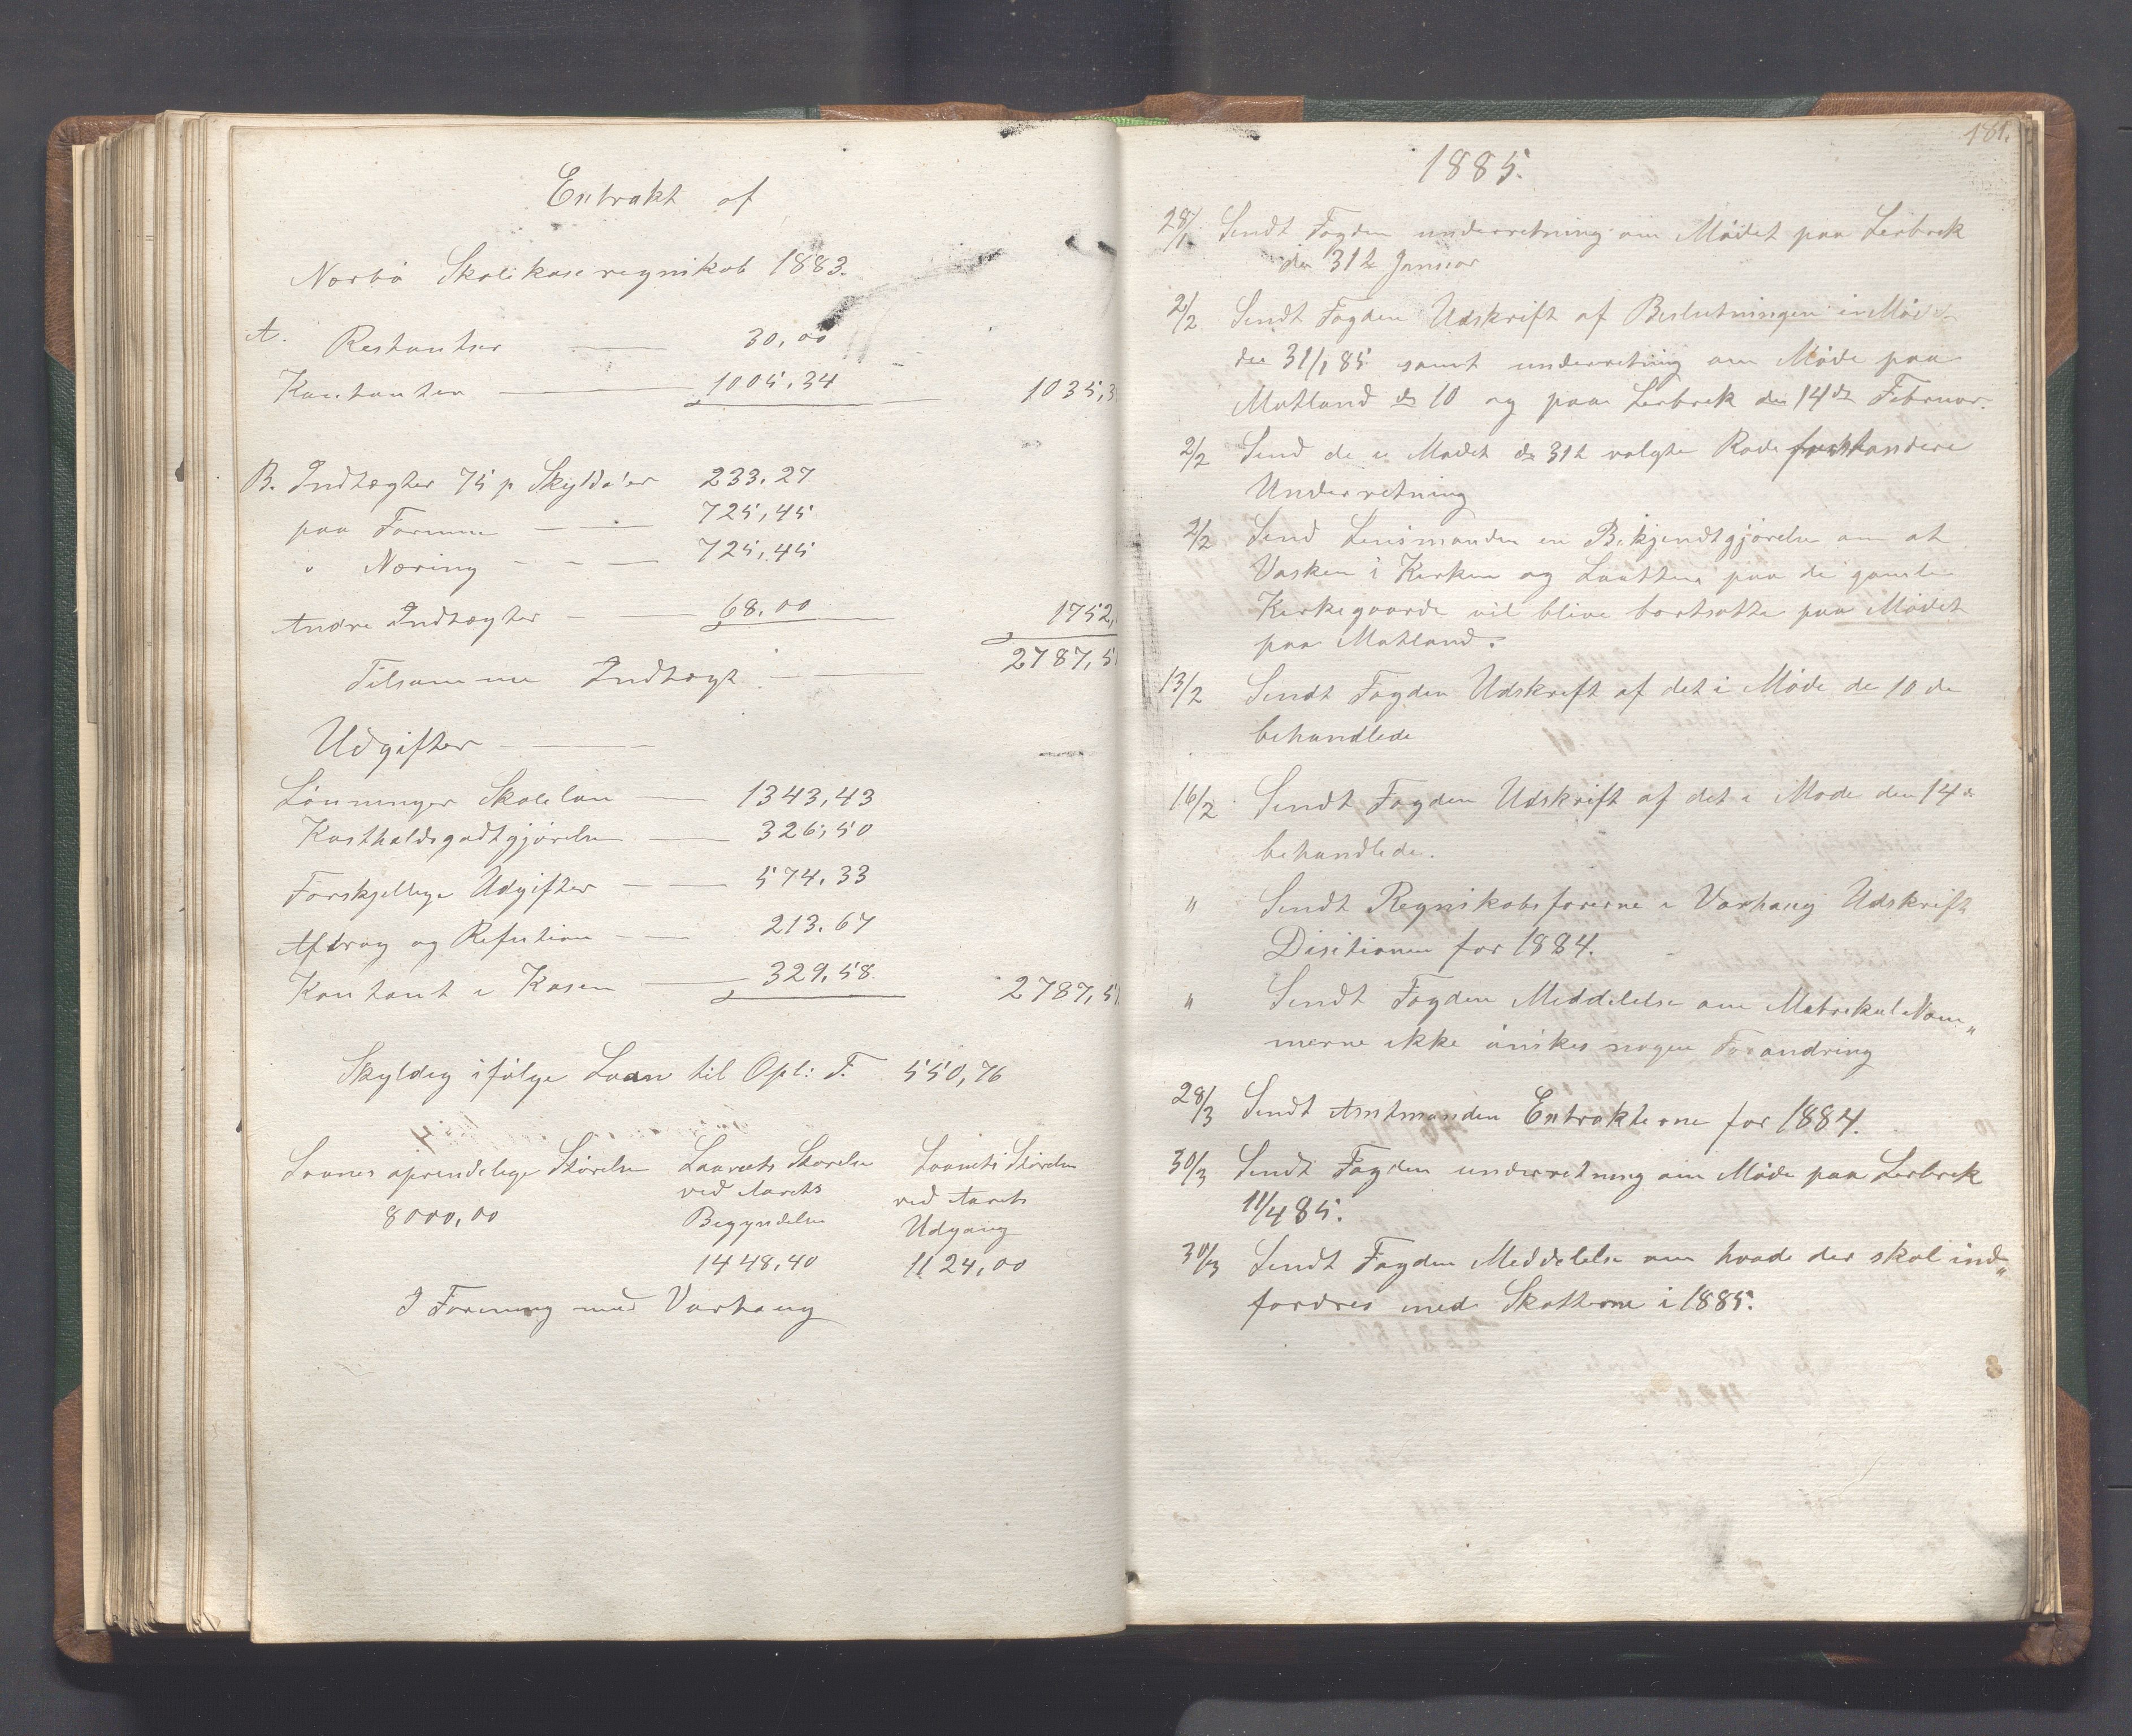 Extrakt af
Nærbø Skolekaseregnskab 1883.
A. Restantser 30,00
Kontanter 1005,34 1035,3
B. Indtægter 75 p Skyldd'er 233.27
paa Formue 725,45
" Næring 725,45
Andre Indtægter 68,00 1752,
Tilsamme Indtægt 2787,5
Udgifter
Lønninger Skolelæn 1343,43
Kostholdsgodtgjørelse 326,50
Forskjellige Udgifter 574.33
Afdrag og Refution 213.67
Kontant i Kasen 329,58 2787,5
Skyldig ifølge Laan til Opl: F. 550,76
Laanes oprindelige Størelse Laanets Størelse Laanets Størelse
ved Aarets ved Aarets
8000,00 Begyndelse Udgang
1448,40 1124,00
I Forening med Varhaug
181.
1885.
28/1 Sendt Fogden underretning om Mødet paa Lerbrek
den 31te Januar
2/2 Sendt Fogden Udskrift af Beslutningen i Møde
den 31/1 85 samt underretning om Møde paa
Motland d 10 og paa Lerbrek den 14de Februar.
2/2 Send de i Mødet d 31te valgte Rodeforstandere
Underretning
2/2 Send Lensmanden en Bekjendtgjørelse om at
Vasken i Kirken og Laatten paa de gamle
Kirkegaarde vil blive bortsatte paa Mødet
paa Motland.
13/2 Sendt Fogden Udskrift af det i Møde de 10 de
behandlede
16/2 Sendt Fogden Udskrift af det i Møde den 14de
behandlede.
" Sendt Regnskabsførerne i Varhaug Udskrift
Disitionen for 1884.
" Sendt Fogden Meddelelse om MatrekulNom„
merne ikke ønskes nogen Forandring
28/3 Sendt Amtmanden Extrakterne for 1884.
30/3 Sendt Fogden underretning om Møde paa Lerbrek
11/4 85.
30/3 Sendt Fogden Meddelelse om hvade der skal ind„
fordres med Skatterne i 1885.